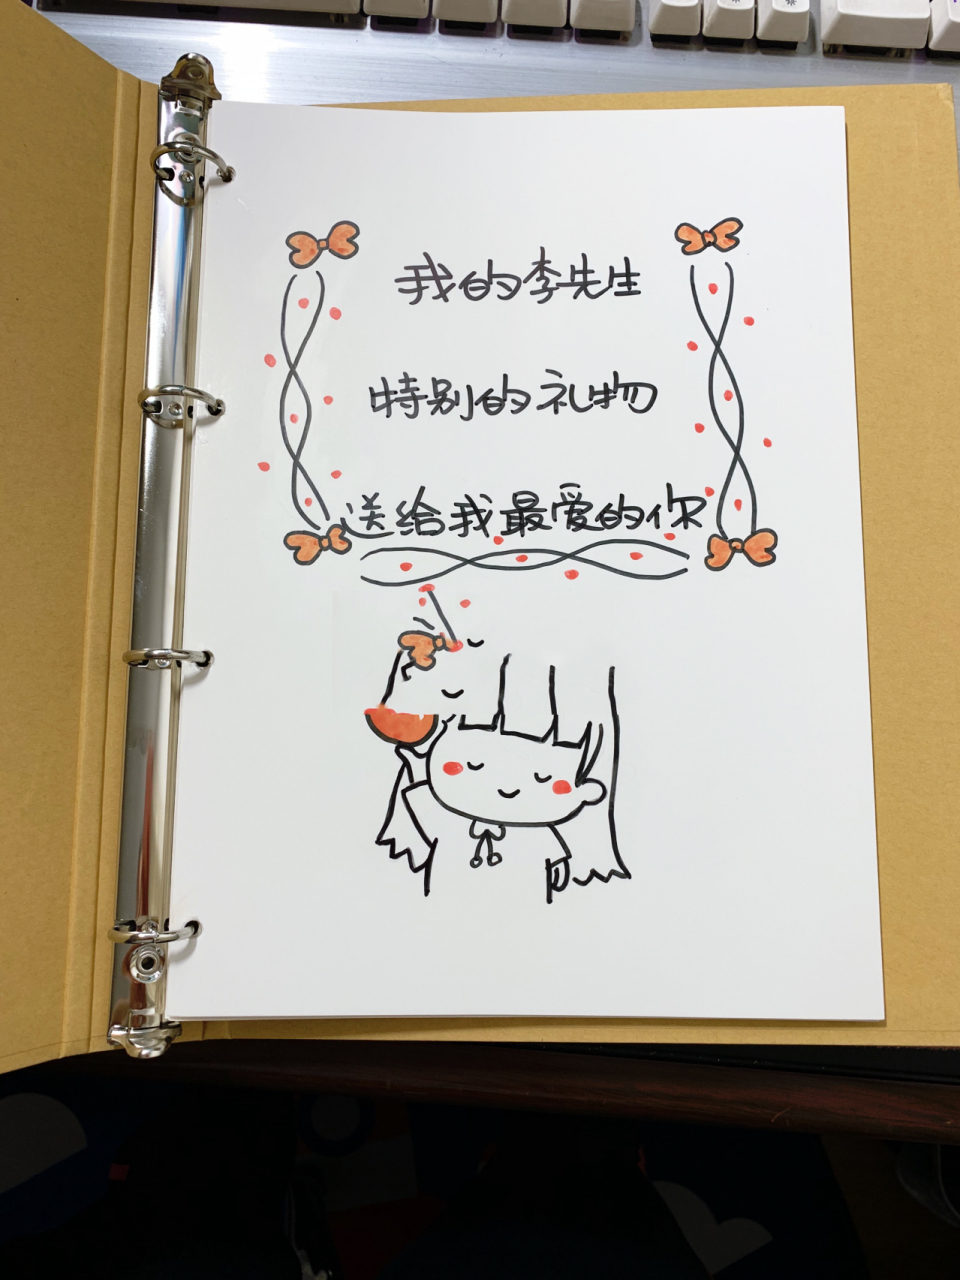 我的李先生
特别的礼物
送给我最爱的你